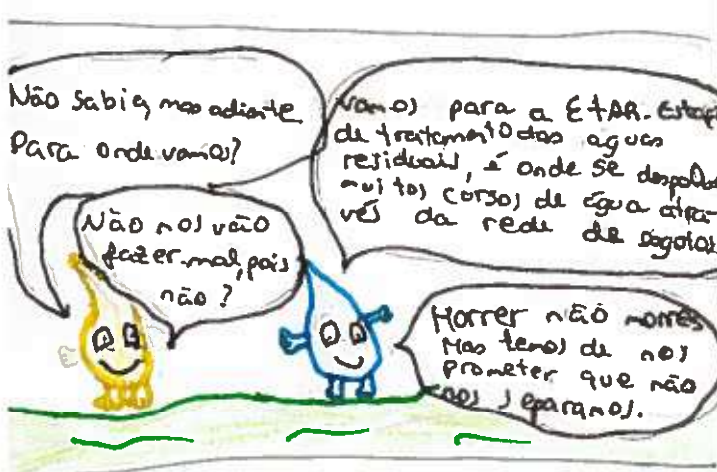 Não sabia, mas adiante
Para onde vamos?
Vamos para a ETAR. Estação
de tratamento das aguas
residuais, é onde se despolui
muitos cursos de água atra-
vés da rede de esgotos
Não nos vão
fazer mal, pois
não?
Morrer não morres
Mas temos de nos
prometer que não
nos separamos.